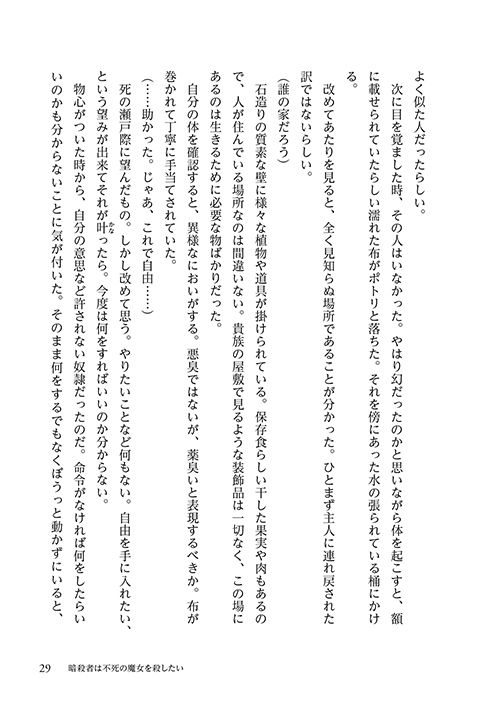 よく似た人だったらしい。
　次に目を覚ました時、その人はいなかった。やはり幻だったのかと思いながら体を起こすと、額
に載せられていたらしい濡れた布がポトリと落ちた。それを傍にあった水の張られている桶にかけ
る。
　改めてあたりを見ると、全く見知らぬ場所であることが分かった。ひとまず主人に連れ戻された
訳ではないらしい。
（誰の家だろう）
　石造りの質素な壁に様々な植物や道具が掛けられている。保存食らしい干した果実や肉もあるの
で、人が住んでいる場所なのは間違いない。貴族の屋敷で見るような装飾品は一切なく、この場に
あるのは生きるために必要な物ばかりだった。
　自分の体を確認すると、異様なにおいがする。悪臭ではないが、薬臭いと表現するべきか。布が
巻かれて丁寧に手当てされていた。
（……助かった。じゃあ、これで自由……）
　死の瀬戸際に望んだもの。しかし改めて思う。やりたいことなど何もない。自由を手に入れたい、
という望みが出来てそれが叶かなったら。今度は何をすればいいのか分からない。
　物心がついた時から、自分の意思など許されない奴隷だったのだ。命令がなければ何をしたらい
いのかも分からないことに気が付いた。そのまま何をするでもなくぼうっと動かずにいると、
29　暗殺者は不死の魔女を殺したい